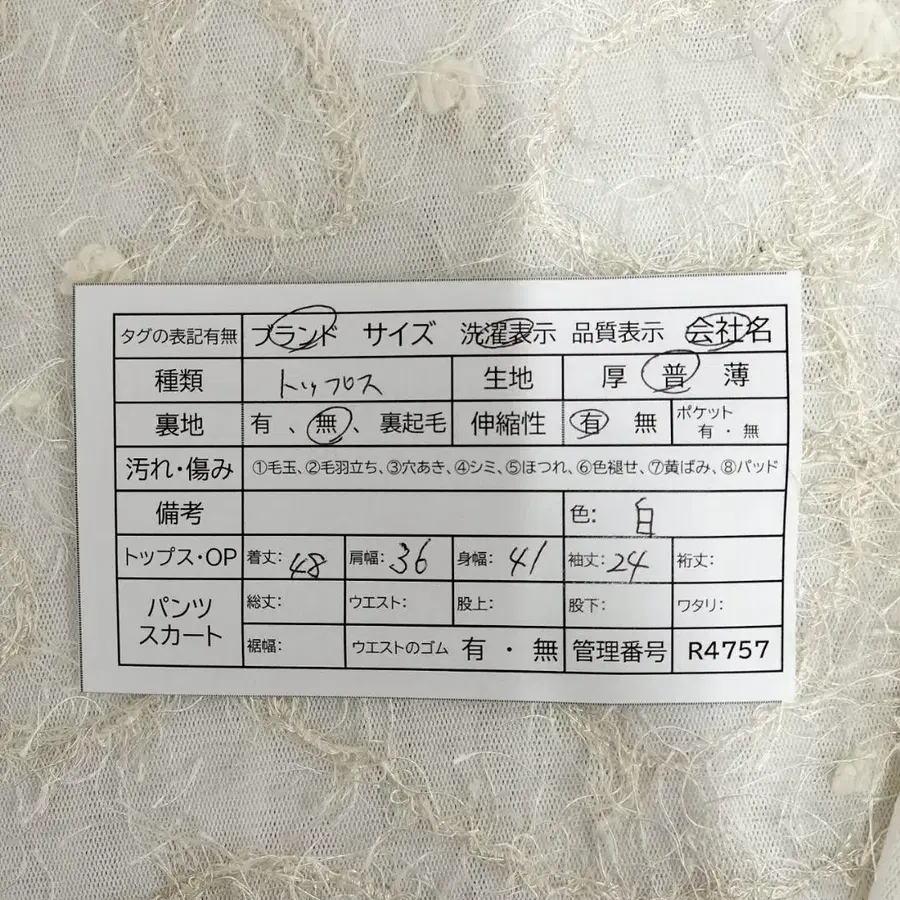 タグの表記有無 ブランド サイズ 洗濯表示 品質表示 会社名
種類 トップス 生地 厚 普 薄
裏地 有 、無、裏起毛 伸縮性 有 無 ポケット 有・無
汚れ・傷み ①毛玉、②毛羽立ち、③穴あき、④シミ、⑤ほつれ、⑥色褪せ、⑦黄ばみ、⑧パッド
備考 色: 白
トップス・OP 着丈: 48 肩幅: 36 身幅: 41 袖丈: 24 裄丈:
パンツ スカート 総丈: ウエスト: 股上: 股下: ワタリ:
裾幅: ウエストのゴム 有・無 管理番号 R4757